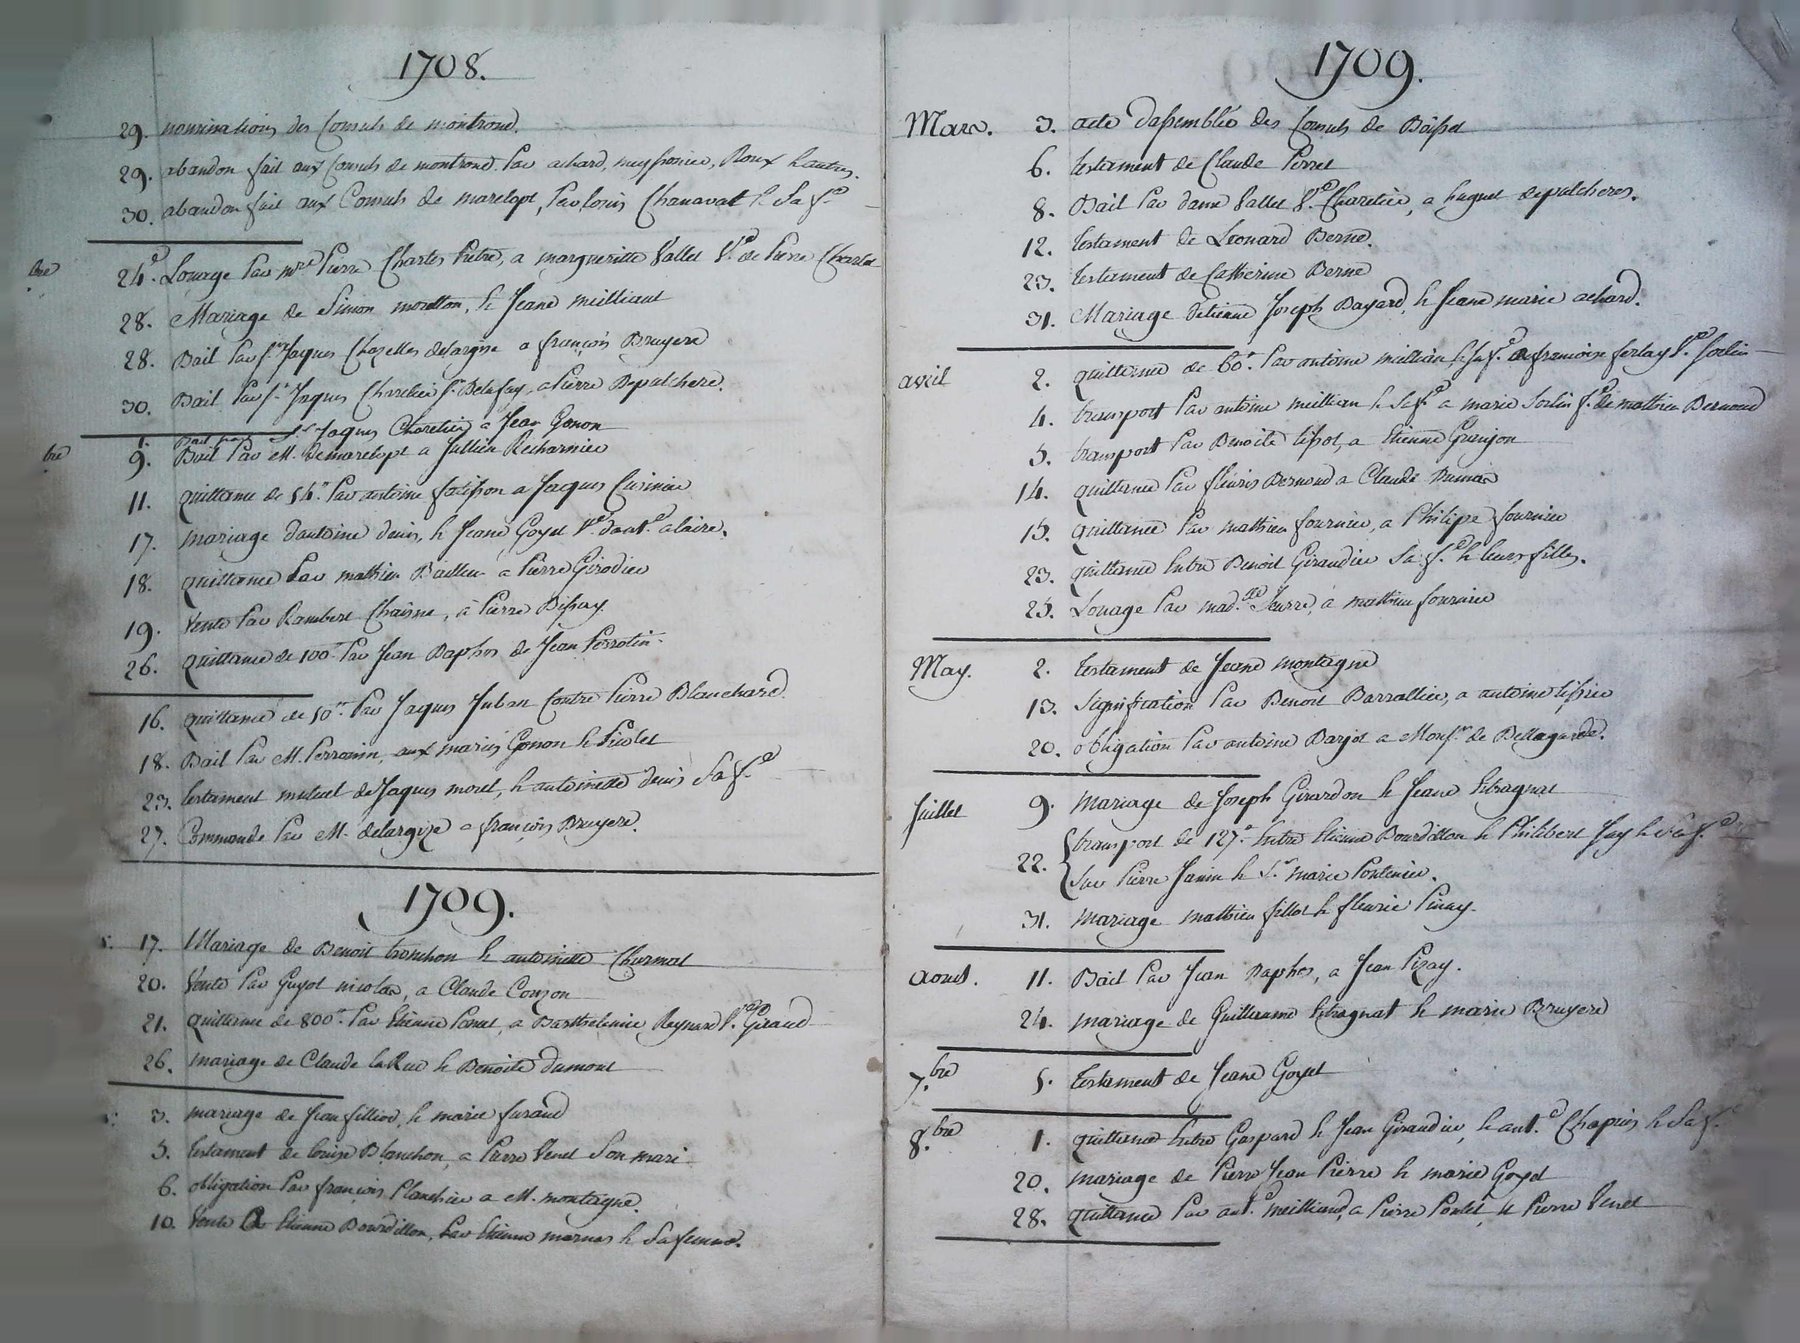 1708.
29. nominations des Consuls de montrond.
29. abandon fait aux Consuls de montrond Par achard, meyssonier, Roux & autres.
30. abandon fait aux Consuls de marclopt, Par Loüis Chanavat & Sa f.e
bre 24.e Louage Par mre Pierre Charles Prêtre, a margueritte Vallet V.e de Pierre
28. Mariage de Simon moretton, & Jeane meilliant
28. Bail Par Sr. Jaques Chazelles delargize a françois Bruyere
30. Bail Par S.r Jaques Charetier Sr. Belafay, a Pierre Depalchere.
1. Bail par S.r Jaques Charetier a Jean Gonon
bre 9. Bail Par M. Demarclopt a Jullien Recharnier
11. quittance de 54.tt Par antoine fatisson a Jaques Cusinier
17. mariage d'antoine denis, & Jeane Goyet V.e d'ant.e alaire.
18. quittance Par mathieu Bailleu a Pierre Girodier
19. Vente Par Rambert Chaisne, à Pierre Bissay
26. quittance de 100.tt Par Jean Daphos de Jean Perrotin
16. quittance de 50.tt Par Jaques Juban Contre Pierre Blanchard.
18. Bail Par M. Perronin, aux mariés Gonon & Piolet
23. testament mutuel de Jaques moret, & antoinette denis Sa f.e
27. Commande Par M. delargize a françois Bruyere.
1709.
17. Mariage de Benoit tronchon & antoinette Charmat
20. Vente Par Guyot nicolas, a Claude Couzon
21. quittance de 800.tt Par Etienne Ponet, a Barthelemie Reynard V.ve Giraud
26. mariage de Claude laRue & Benoite dumont
3. mariage de Jean filliod, & marie furand
5. testament de Louize Blanchon, a Pierre Venet Son mari
6. obligation Par françois Planchier a M. montagne.
10. Vente a Etienne Bourdillon, Par Etienne marnas & Sa femme.
1709.
Mars. 3. acte d'assemblée des Consuls de Boisset
6. testament de Claude Perret
8. Bail Par dame Vallet V.e Charetier, a huguet depalcheres.
12. testament de Leonard Berne.
23. testament de Catherine Berne
31. Mariage d'etienne Joseph Bayard, & Jeane marie achard.
avril 2. quittance de 60.tt Par antoine millian & sa f.e a francoise ferlay V.ve Sorlin
4. transport Par antoine meillian & Sa f.e a marie Sorlin f.e de mathieu Bernoud
5. transport Par Benoite tissot, a Etienne Grenjon
14. quittance Par fleuris Bernoud a Claude Dumas
15. quittance Par mathieu fournier, a Philipe fournier
23. quittance Entre Benoit Giraudier Sa f.e & leurs filles.
25. Louage Par mad.lle Seurre, a mathieu fournier
May. 2. testament de Jeane montagne
13. Signification Par Benoit Barrallier, a antoine tissier
20. obligation Par antoine Barjot a Mons.r de Bellegarde.
Juillet 9. mariage de Joseph Girardon & Jeane Etragnat
22. transport de 127.tt Entre Etienne Bourdillon & Philibert Jay & Sa f.e
Sur Pierre Janin & S.r marie Poulenier.
31. mariage mathieu fillot & fleurie Pinay.
aoust. 11. Bail Par Jean Daphos, a Jean Pizay.
24. mariage de Guillaume Etragnat & marie Bruyere
7.bre 5. testament de Jeane Goyet
8.bre 1. quittance Entre Gaspard & Jean Giraudier, & ant.e Chapuis & Sa f.e
20. mariage de Pierre Jean Pierre & marie Goyet
28. quittance Par ant.e meilliand, a Pierre Poulet, & Pierre Venet